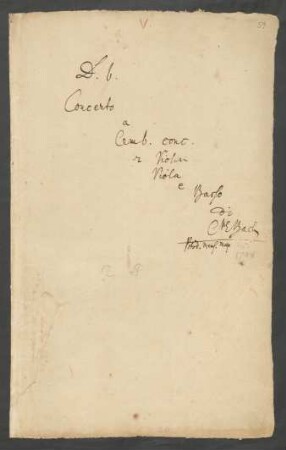 V
59
D. b.
Concerto
a
Cemb. conc.
2 Violin
Viola
e
Basso
di
CPE Bach